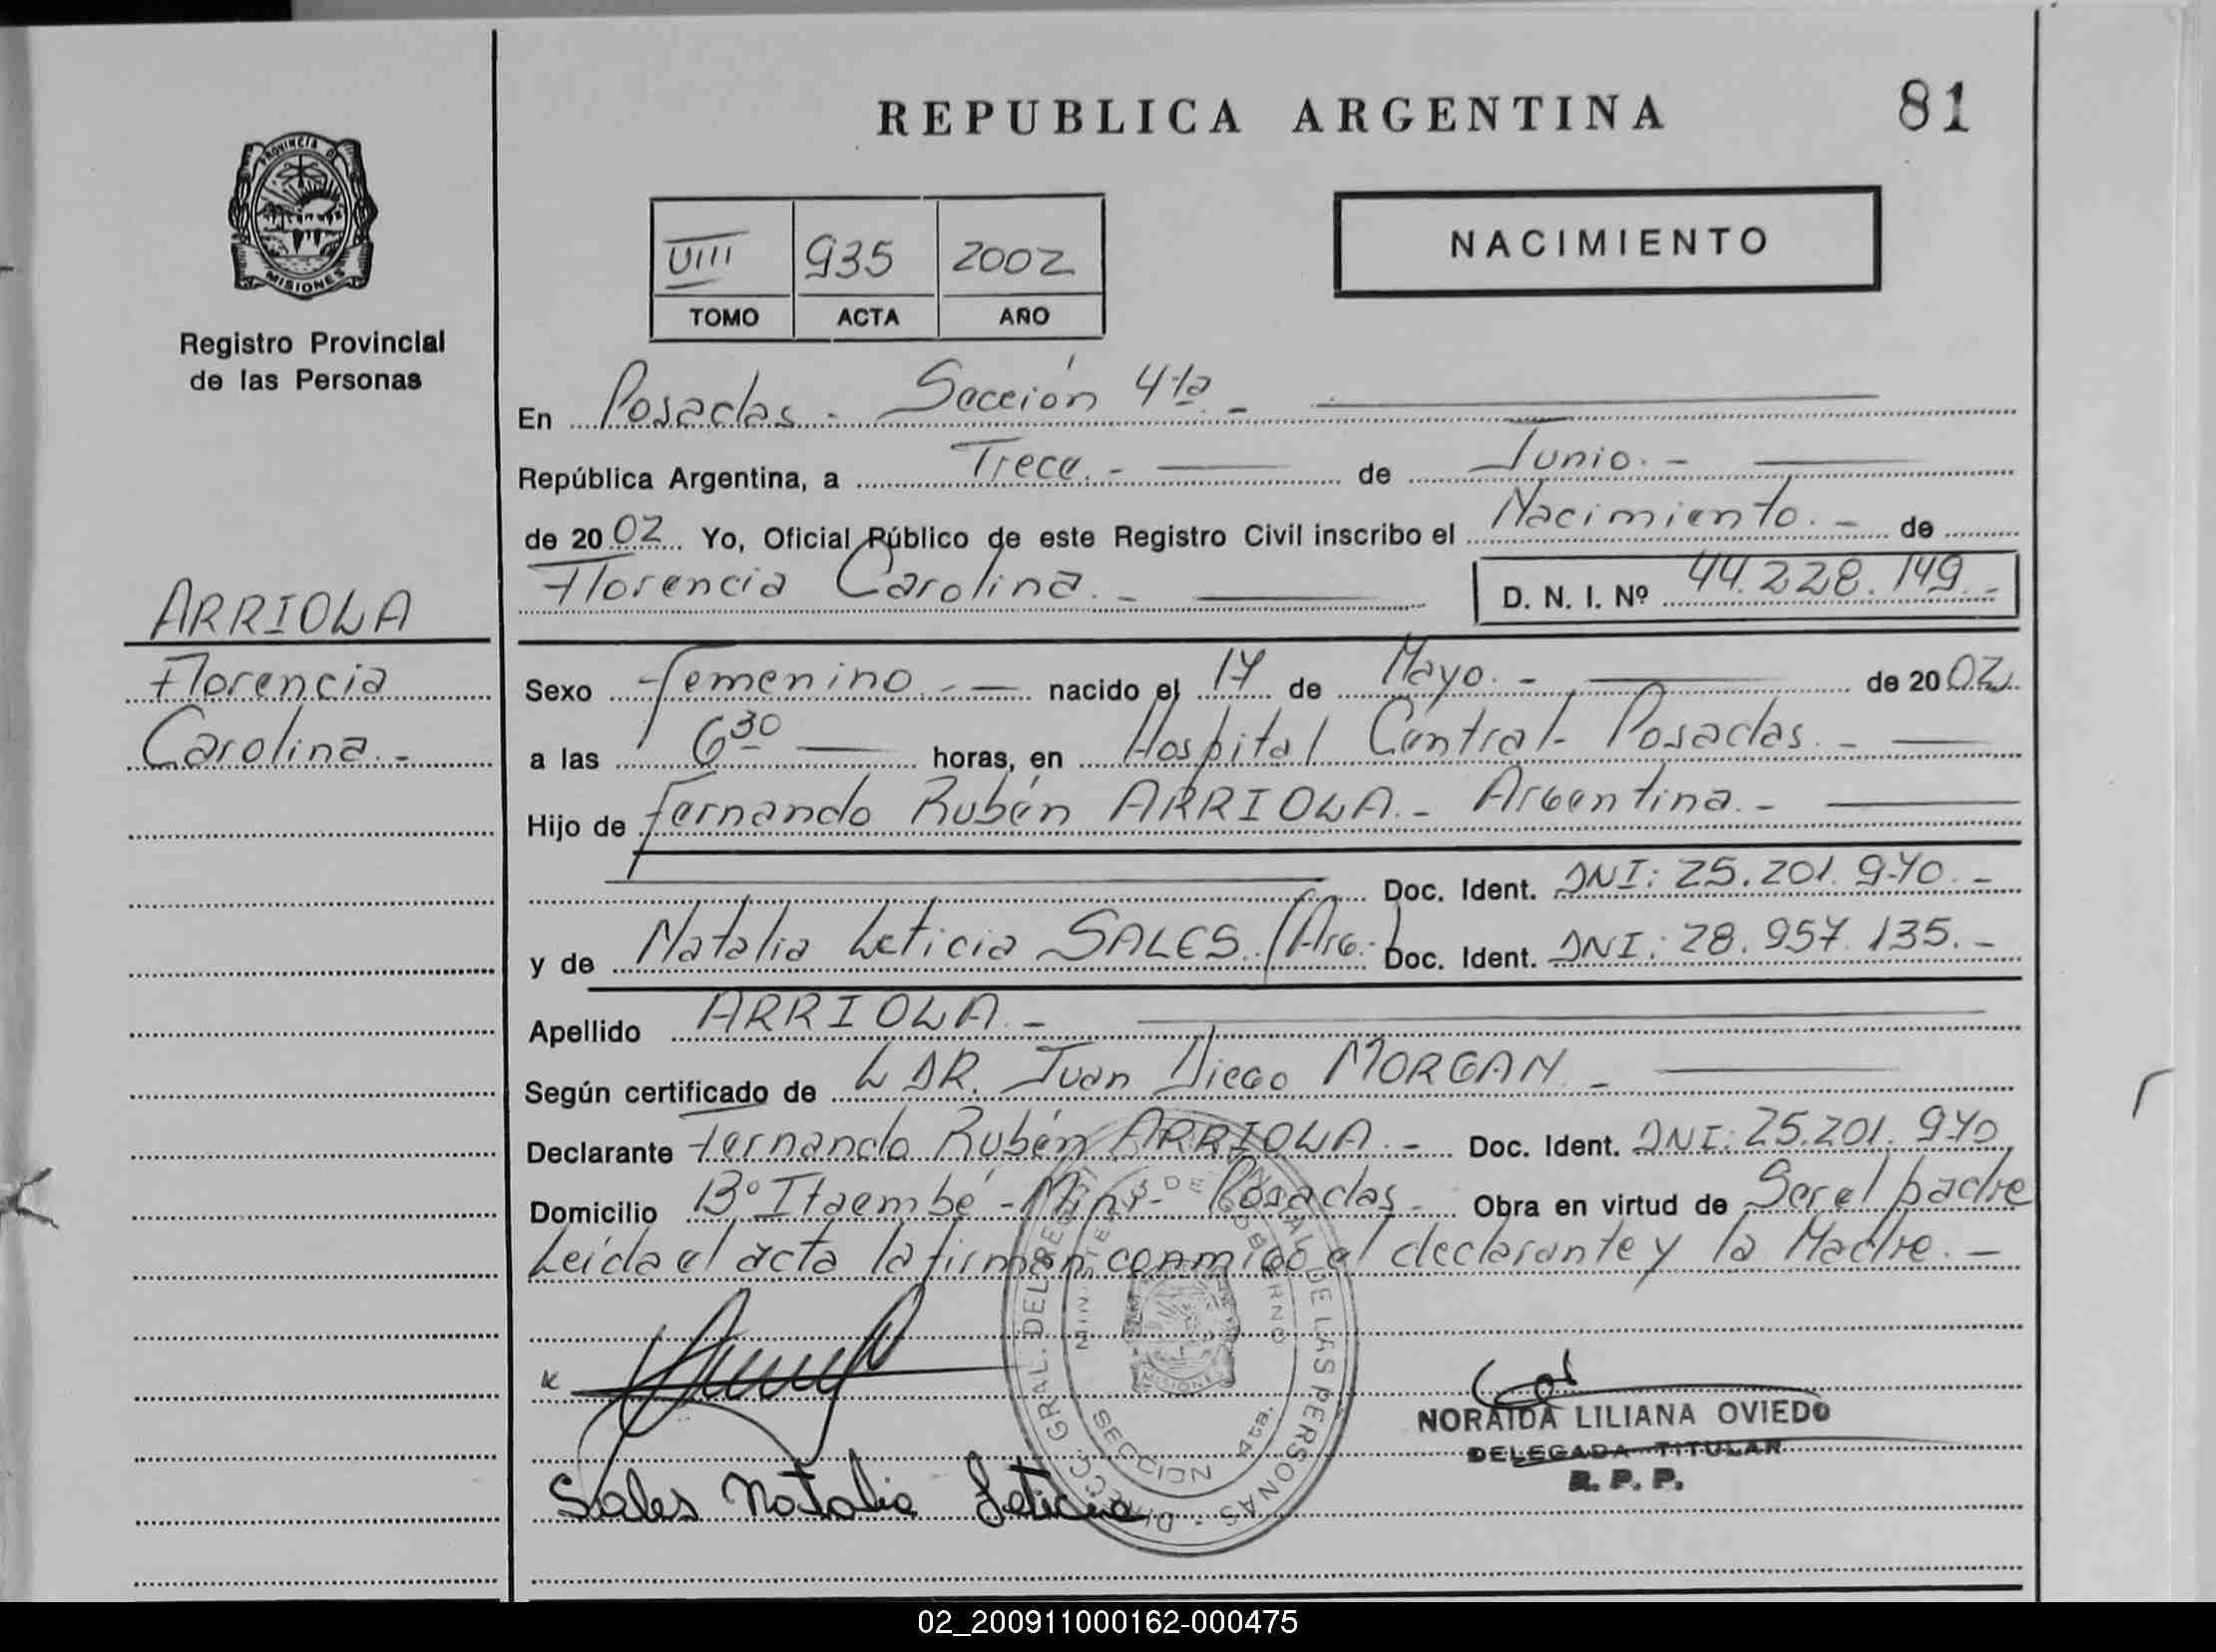 REPUBLICA ARGENTINA
81
PROVINCIA DE
MISIONES
Registro Provincial
de las Personas
VIII 935 2002
TOMO ACTA AÑO
NACIMIENTO
En Posadas - Sección 4ta. -
República Argentina, a Trece. - de Junio. -
de 2002 Yo, Oficial Público de este Registro Civil inscribo el Nacimiento. - de
Florencia Carolina. - D. N. I. Nº 44.228.149. -
ARRIOLA
Florencia
Carolina. -
Sexo Femenino. - nacido el 17 de Mayo. - de 2002.
a las 6 30 horas, en Hospital Central - Posadas. -
Hijo de Fernando Rubén ARRIOLA. - Argentina. -
Doc. Ident. DNI: 25.201.970. -
y de Natalia Leticia SALES. (Arg.-) Doc. Ident. DNI: 28.957.135. -
Apellido ARRIOLA. -
Según certificado de L DR. Juan Diego MORGAN. -
Declarante Fernando Rubén ARRIOLA. - Doc. Ident. DNI: 25.201.970
Domicilio Bº Itaembé - Miní - Posadas. Obra en virtud de Ser el padre
Leída el acta la firman conmigo el declarante y la Madre. -
DIRECC. GRAL. DEL REGISTRO PROVINCIAL DE LAS PERSONAS
MINISTERIO DE GOBIERNO
SECCION 4ta.
NORAIDA LILIANA OVIEDO
DELEGADA TITULAR
R. P. P.
Sales Natalia Leticia
02_200911000162-000475